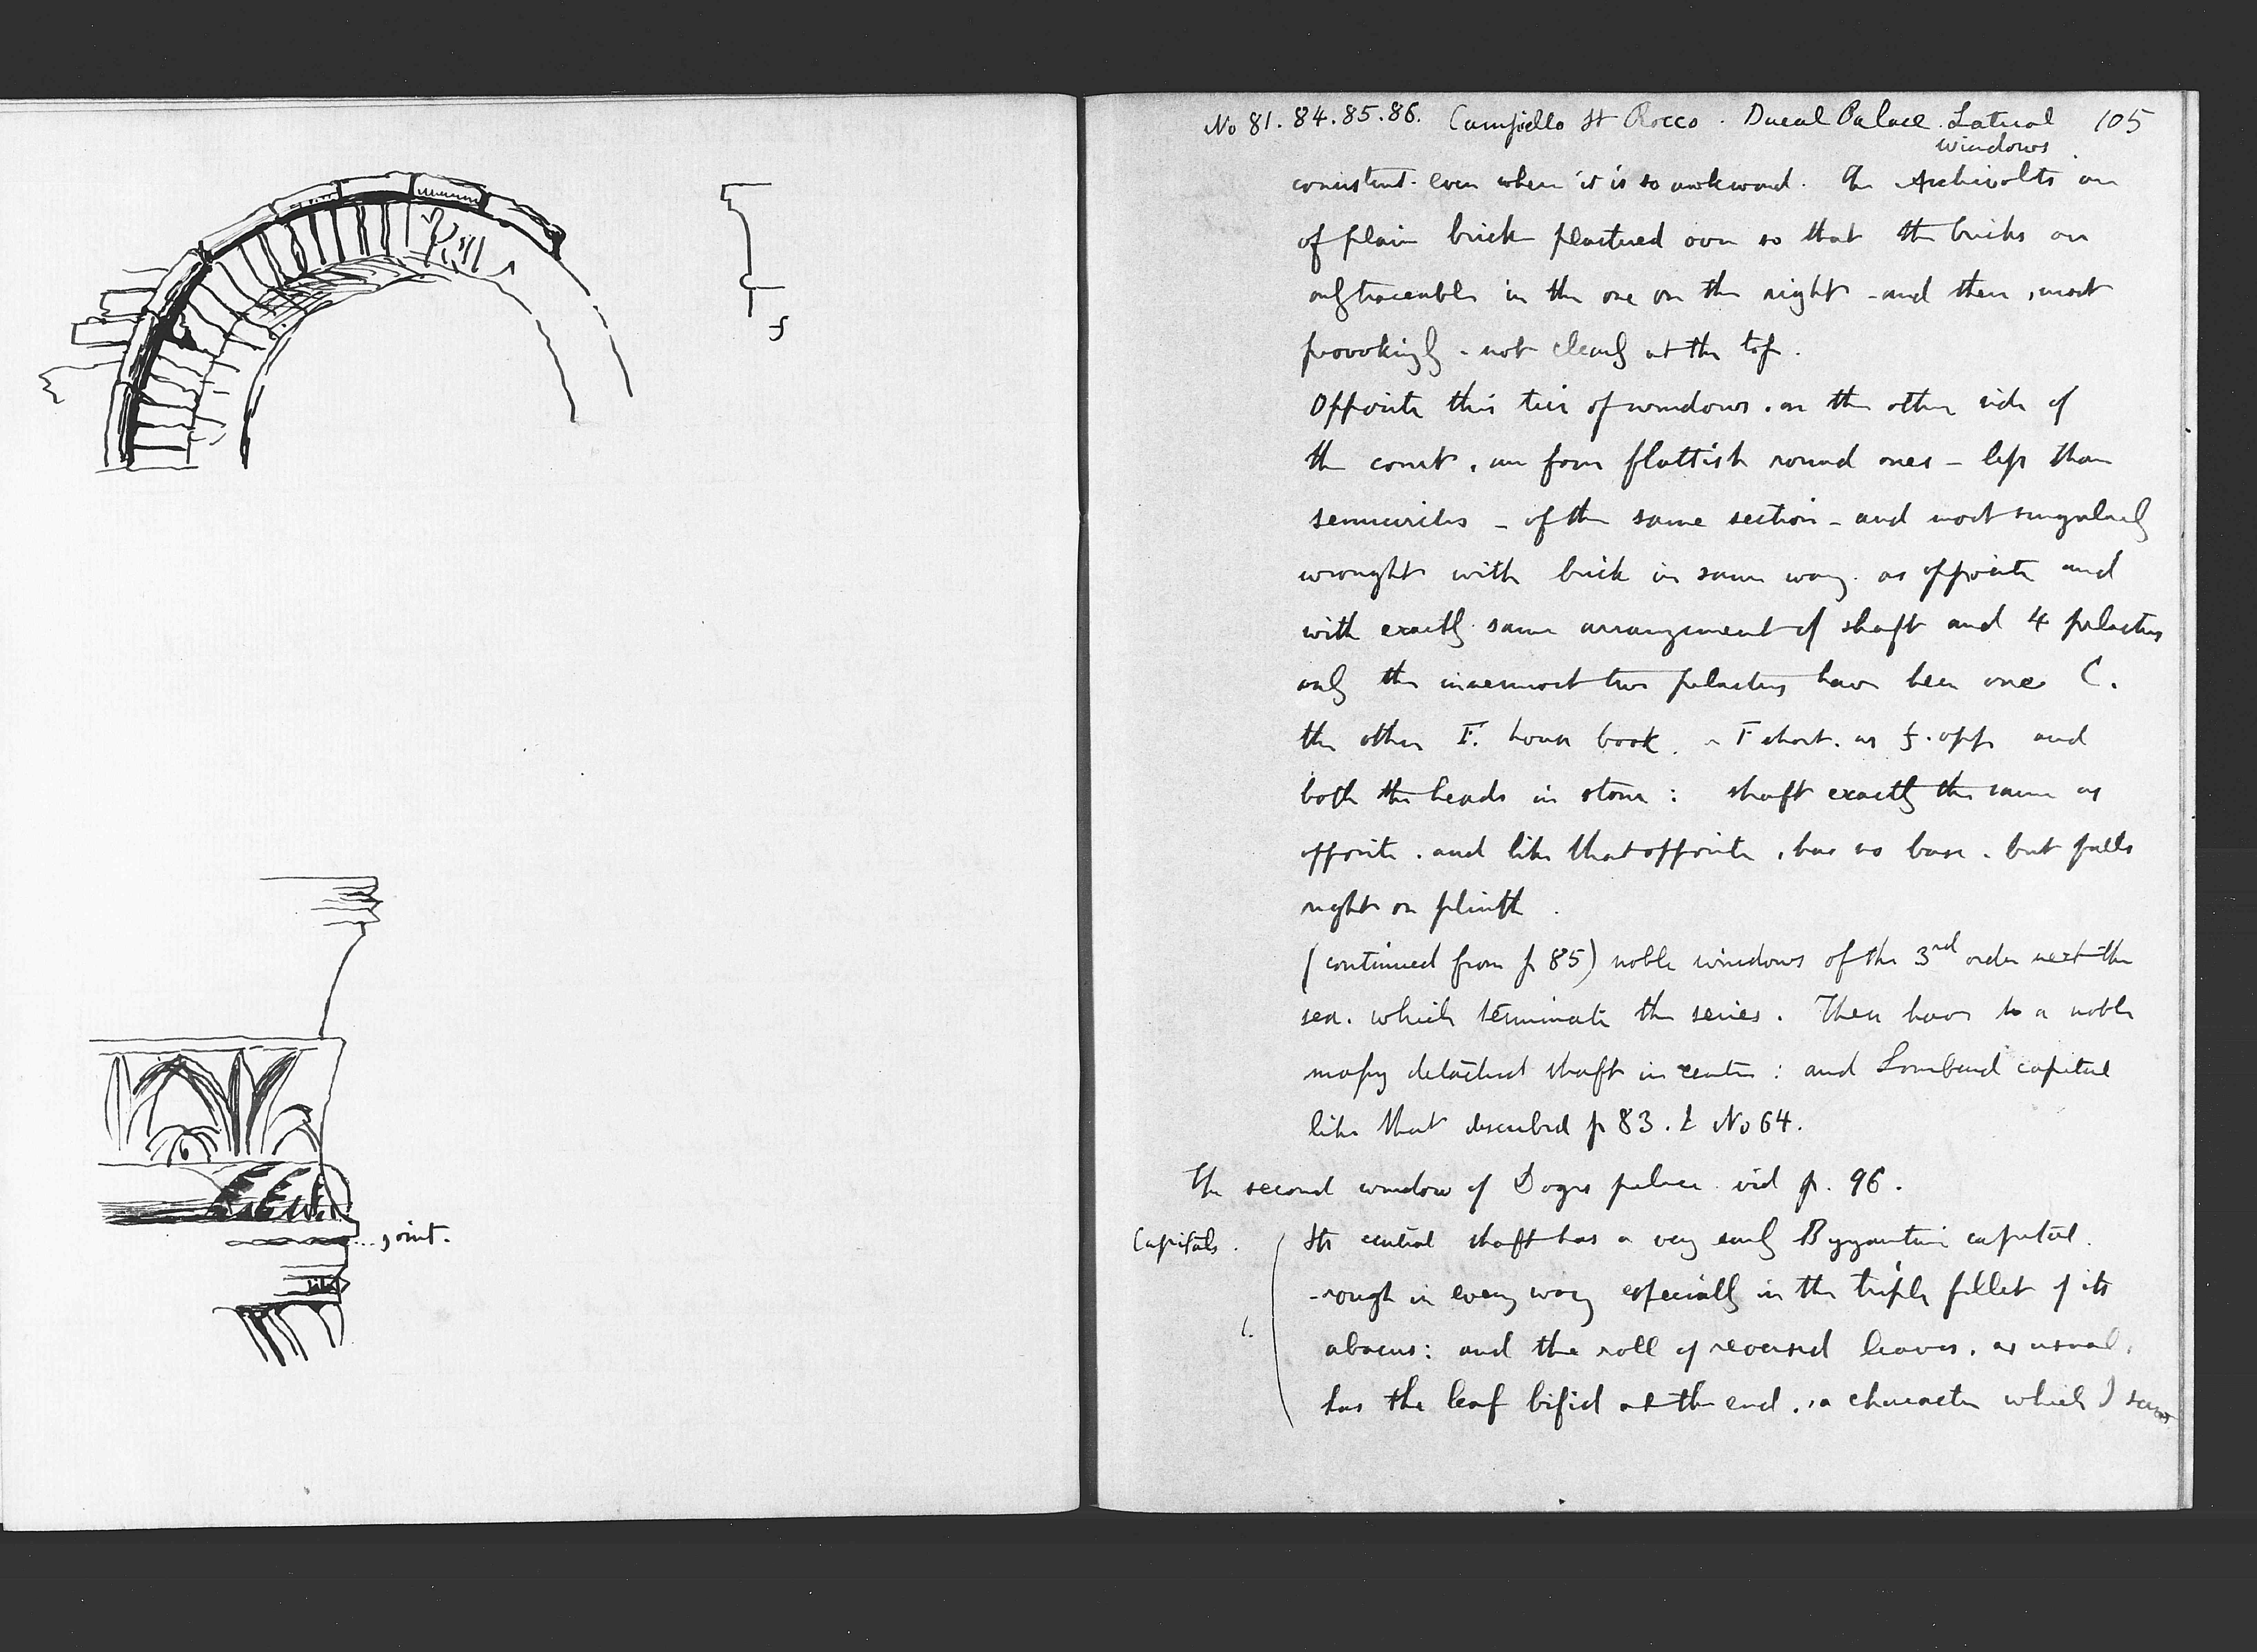 f
joint.
No 81. 84. 85. 86. Campiello St Rocco. Ducal Palace. Lateral 105
windows.
consistent. even when it is so awkward. The Archivolts are
of plain brick plastered over so that the bricks are
only traceable in the one on the right - and there, most
provokingly - not clearly at the top.
Opposite this tier of windows. on the other side of
the court, are four flattish round ones - less than
semicircles - of the same section - and most singularly
wrought with brick in same way. as opposite and
with exactly same arrangement of shaft and 4 pilasters
only the innermost two pilasters have been one C.
the other F. house book. F short. as f. opp and
both the heads in stone: shaft exactly the same as
opposite. and like that opposite, has no base. but falls
right on plinth.
(continued from p 85) noble windows of the 3rd order next the
sea. which terminate the series. These have to a noble
massy detached shaft in centre: and Lombard capital
like that described p 83. & No 64.
The second window of Doges palace. vid p. 96.
Capitals. Its central shaft has a very early Byzantine capital.
- rough in every way especially in the triple fillet of its
1. abacus: and the roll of reversed leaves. as usual.
has the leaf bifid at the end. a character which I saw